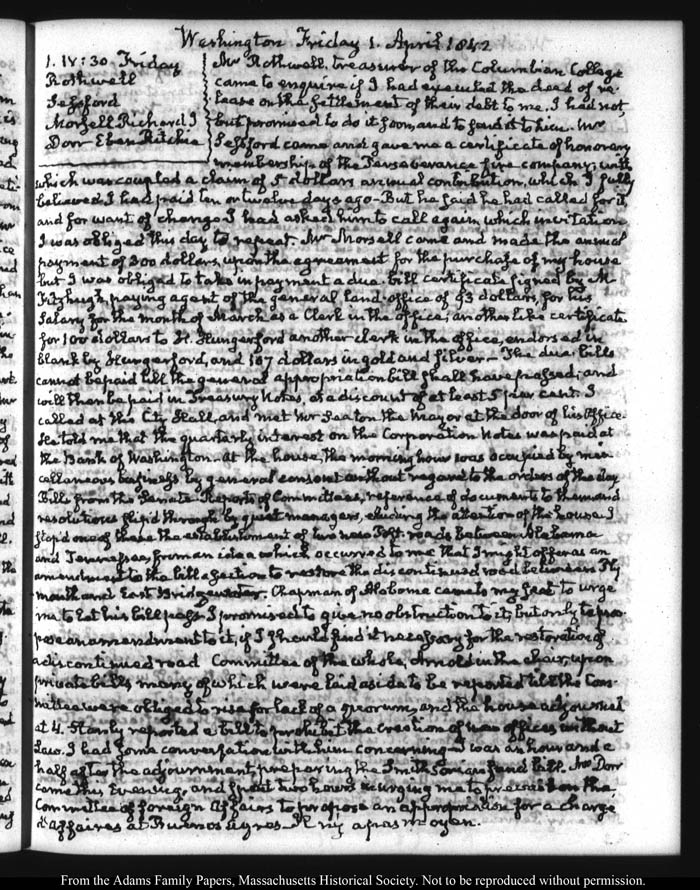 Washington Friday 1. April 1842
1. IV:30. Friday
Rothwell
Sessford
Morsell Richard J
Dorr Eben Ritchie
Mr Rothwell, treasurer of the Columbian College
came to enquire if I had executed the deed of re-
lease on the settlement of their debt to me. I had not,
but promised to do it soon, and to send it to him. Mr
Sessford came and gave me a certificate of honorary
membership of the Perseverance fire company; with
which was coupled a claim of 5 dollars annual contribution, which I fully
believed I had paid ten or twelve days ago— But he said he had called for it,
and for want of change I had asked him to call again, which invitation
I was obliged this day to repeat. Mr Morsell came and made the annual
payment of 300 dollars, upon the agreement for the purchase of my house
but I was obliged to take in payment a due-bill certificate signed by M
Fitzhugh, paying agent of the general land-office of 93 dollars, for his
Salary for the month of March as a Clerk in the office; another like certificate
for 100 dollars to H. Hungerford another clerk in the office, endorsed in
blank by Hungerford, and 107 dollars in gold and silver— The due bills
cannot be paid till the general appropriation bill shall have passed; and
will then be paid in Treasury Notes, at a discount of at least 5 per cent. I
called at the City Hall, and met Mr Seaton the Mayor at the door of his Office.
He told me that the quarterly interest on the Corporation Notes was paid at
the Bank of Washington— At the house, the morning hour was occupied by mis-
cellaneous business by general consent without regard to the orders of the day
Bills from the Senate Reports of Committees, reference of documents to them and
resolutions slip'd through by quiet managers, eluding the attention of the house. I
stop'd one of these the establishment of two new Post-roads between Alabama
and Tennessee, from an idea which occurred to me that I might offer as an
amendment to the bill a section to restore the discontinued road between Ply-
mouth and East Bridgewater. Chapman of Alabama came to my seat to urge
me to let his bill pass. I promised to give no obstruction to it, but only to pro-
pose an amendment to it, if I should find it necessary for the restoration of
a discontinued road Committee of the whole, Arnold in the chair, upon
private bills many of which were laid aside to be reported till the Com-
mittee were obliged to rise for lack of a quorum, and the house adjourned
at 4. Stanly reported a bill to prohibit the creation of new offices without
Law. I had some conversation with him concerning— I was an hour and a
half after the adjournment preparing the Smithsonian fund bill. Mr Dorr
came this Evening, and spent two hours in urging me to prevail on the
Committee of foreign Affairs to propose an appropriation for a chargé
d'Affaires at Buenos Ayres— Il n'y a pas moyen.
From the Adams Family Papers, Massachusetts Historical Society. Not to be reproduced without permission.